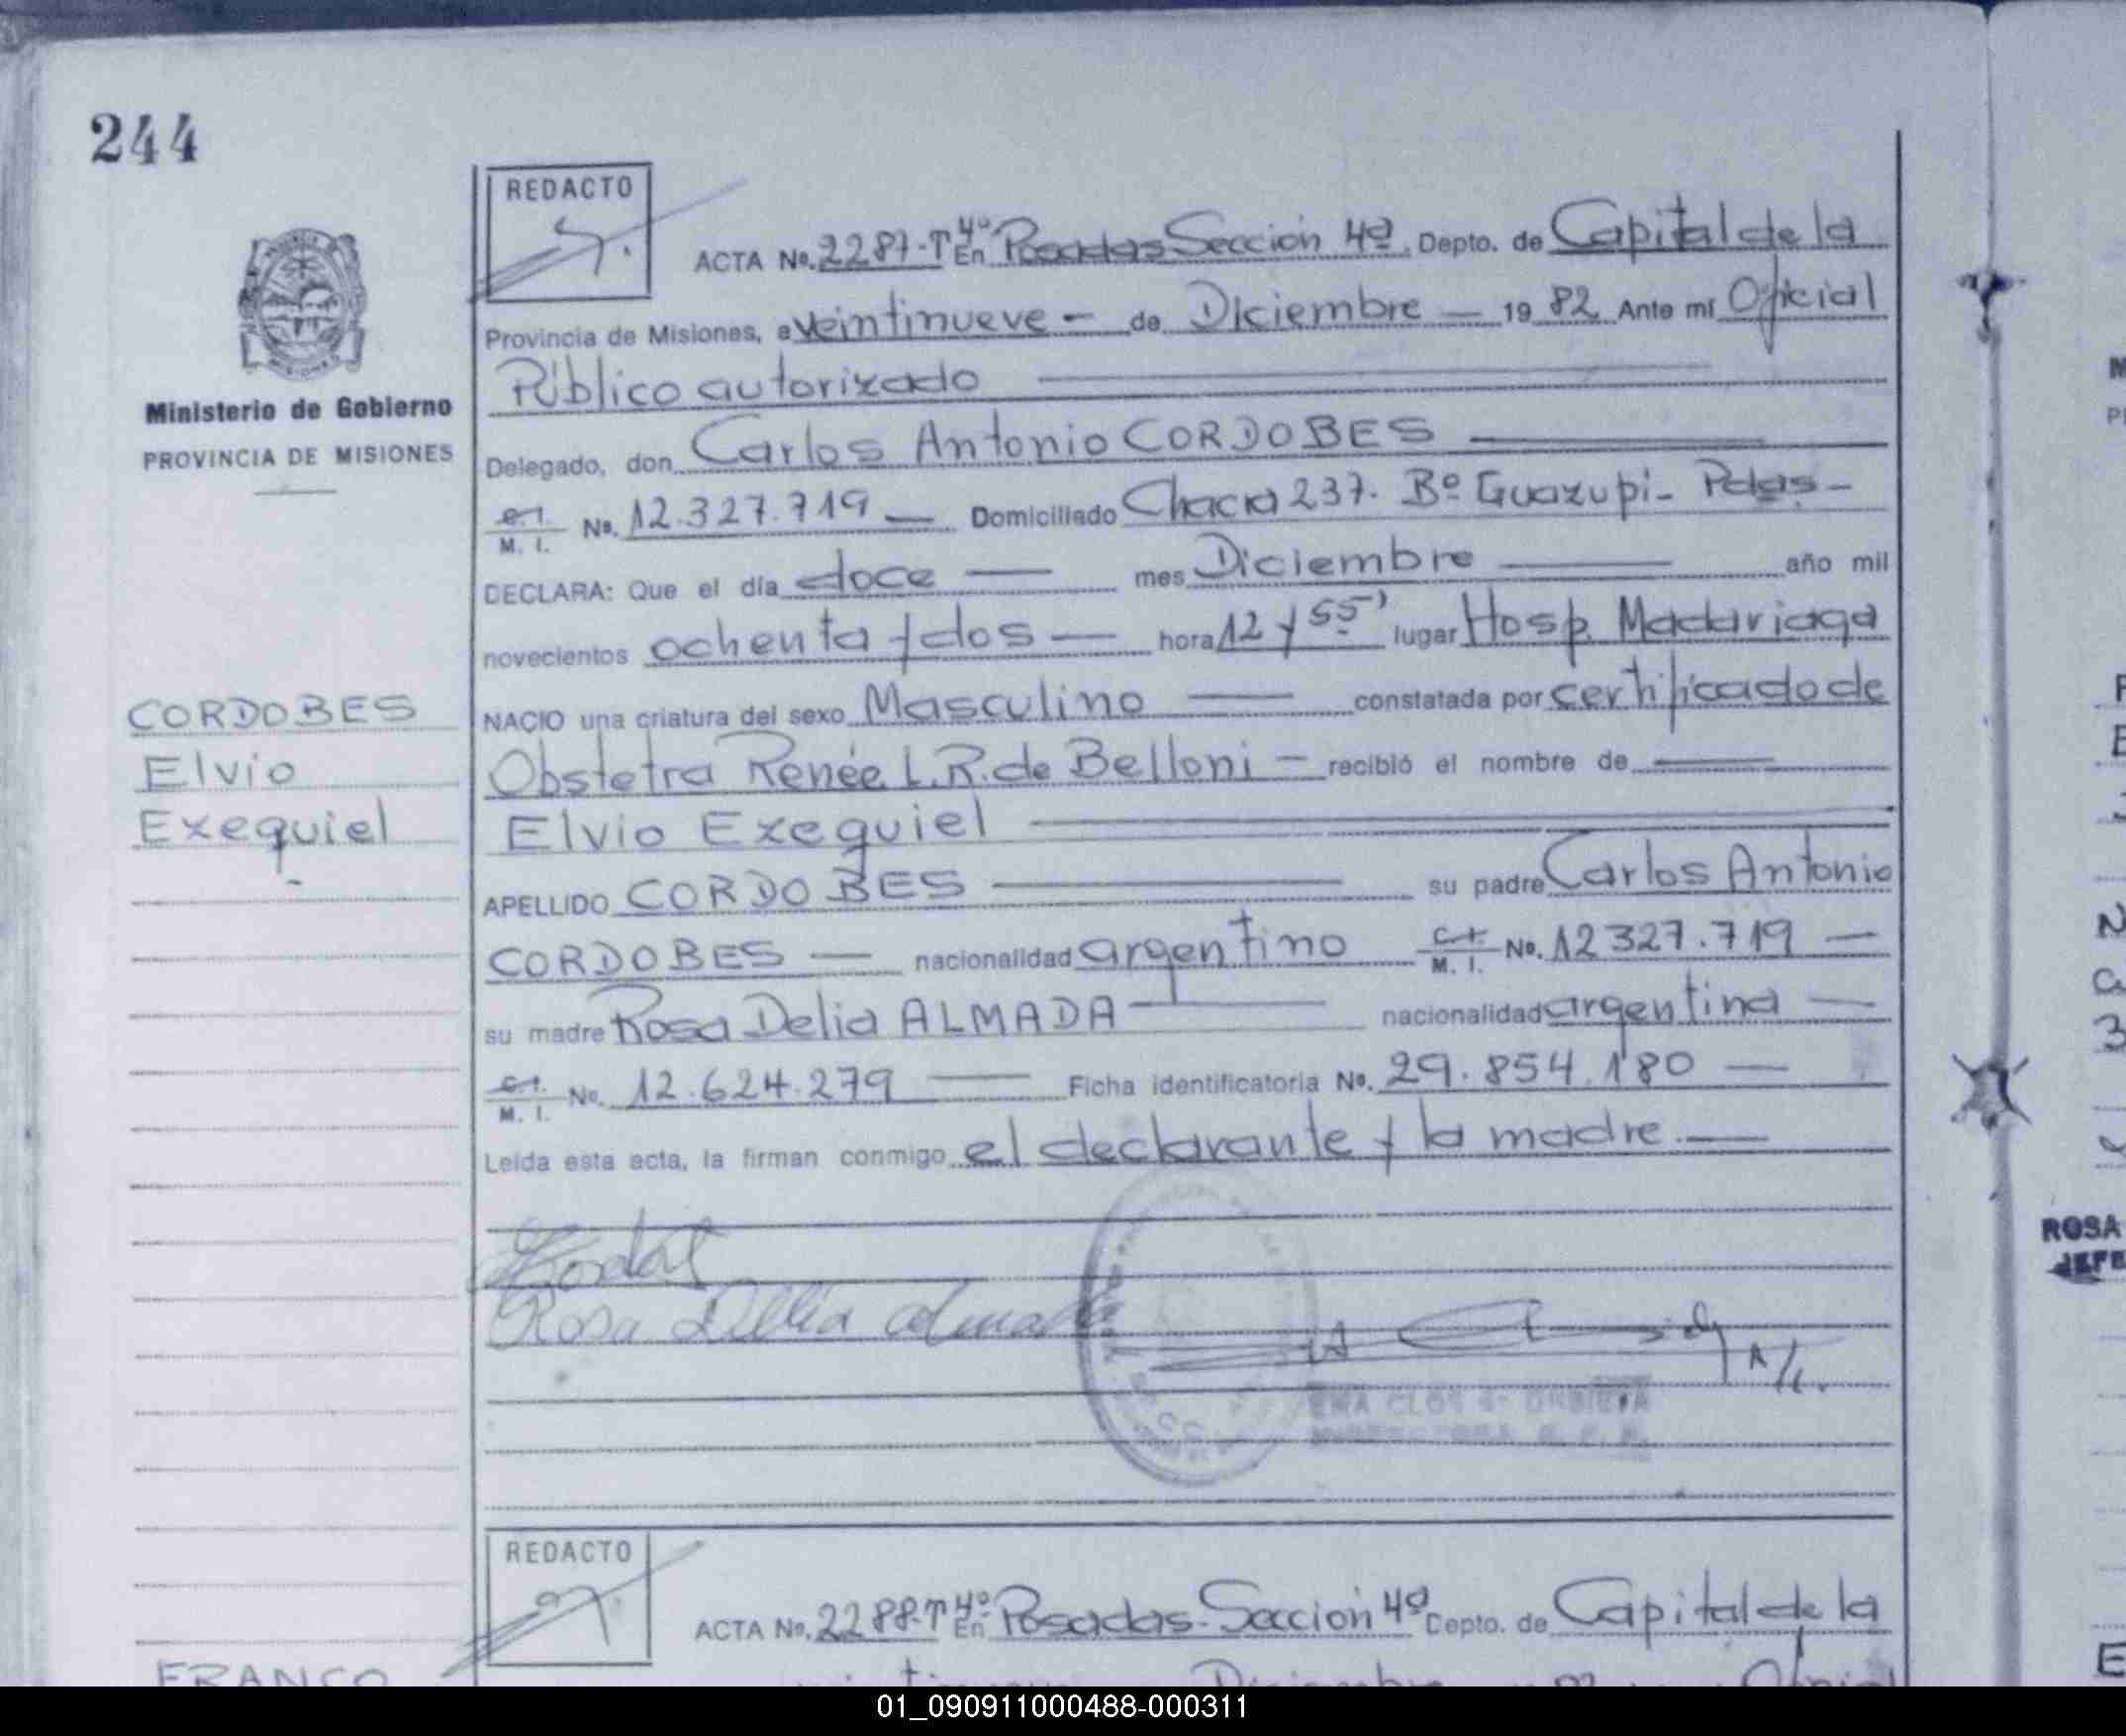 244
REDACTO
ACTA No. 2287-T 4º En Posadas Sección 4ª Depto. de Capital de la
Provincia de Misiones, a veintinueve - de Diciembre — 19 82 Ante mí Oficial
Público autorizado
Delegado, don Carlos Antonio CORDOBES
C. I. M. I. No. 12.327.719 — Domiciliado Chacra 237. Bº Guazupi - Pdas -
DECLARA: Que el día doce — mes Diciembre — año mil
novecientos ochenta y dos — hora 12 y 55' lugar Hosp. Madariaga
NACIO una criatura del sexo Masculino — constatada por certificado de
Obstetra Renée L. R. de Belloni - recibió el nombre de
Elvio Exequiel
APELLIDO CORDOBES — su padre Carlos Antonio
CORDOBES — nacionalidad argentino C. I. M. I. No. 12 327.719 —
su madre Rosa Delia ALMADA — nacionalidad argentina —
C. I. M. I. No. 12.624.279 — Ficha identificatoria No. 29.854.180 —
Leída esta acta, la firman conmigo el declarante y la madre. —
Rosa Delia Almada
Ministerio de Gobierno
PROVINCIA DE MISIONES
CORDOBES
Elvio
Exequiel
REDACTO
ACTA No. 2288-T 4º En Posadas - Sección 4ª Depto. de Capital de la
FRANCO
ROSA
JEFE
01_090911000488-000311